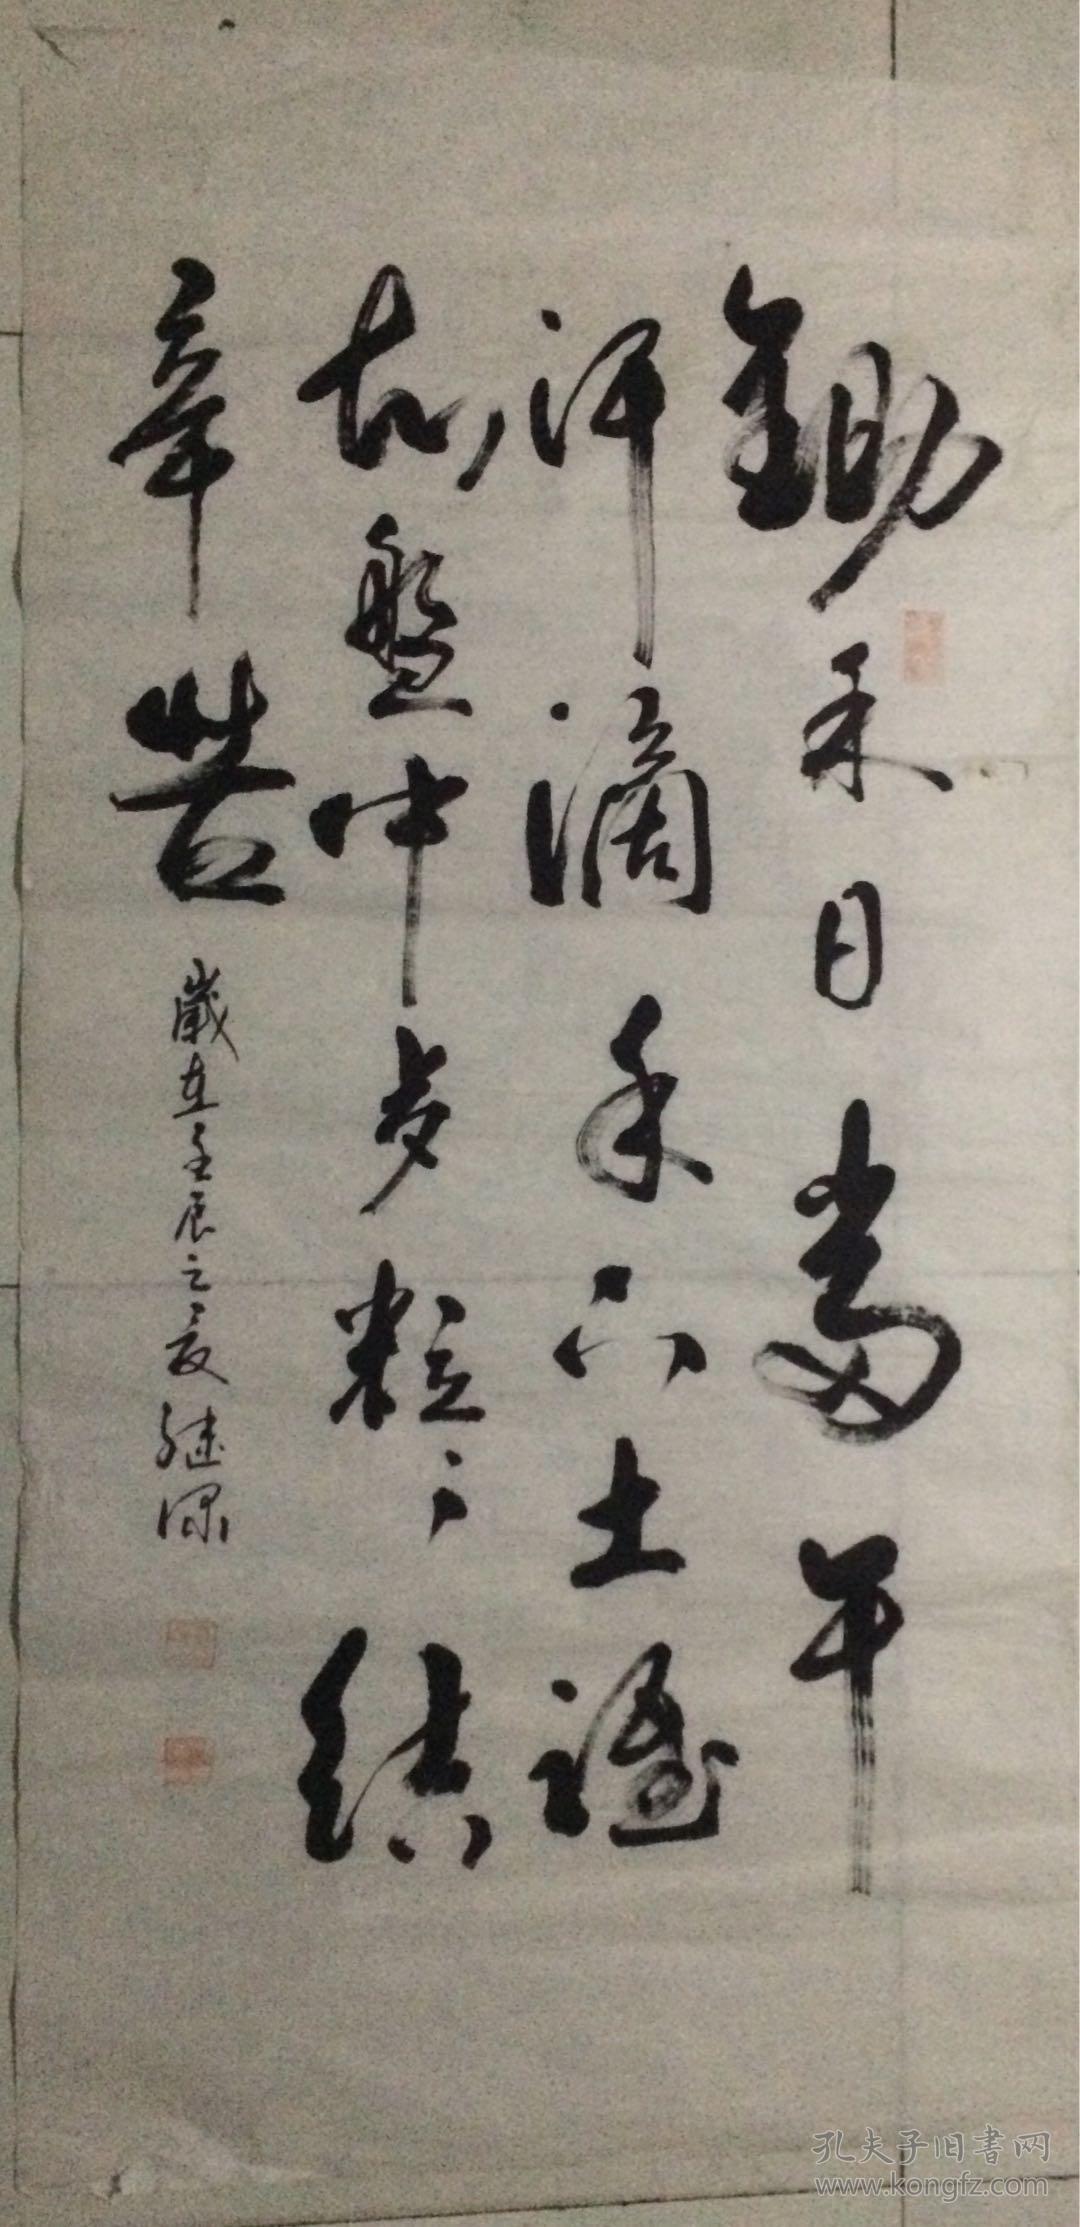 鋤禾日當午
汗滴禾下土誰
知盤中歺粒々结
辛苦
歲在壬辰之夏继深
孔夫子旧書网
www.kongfz.com